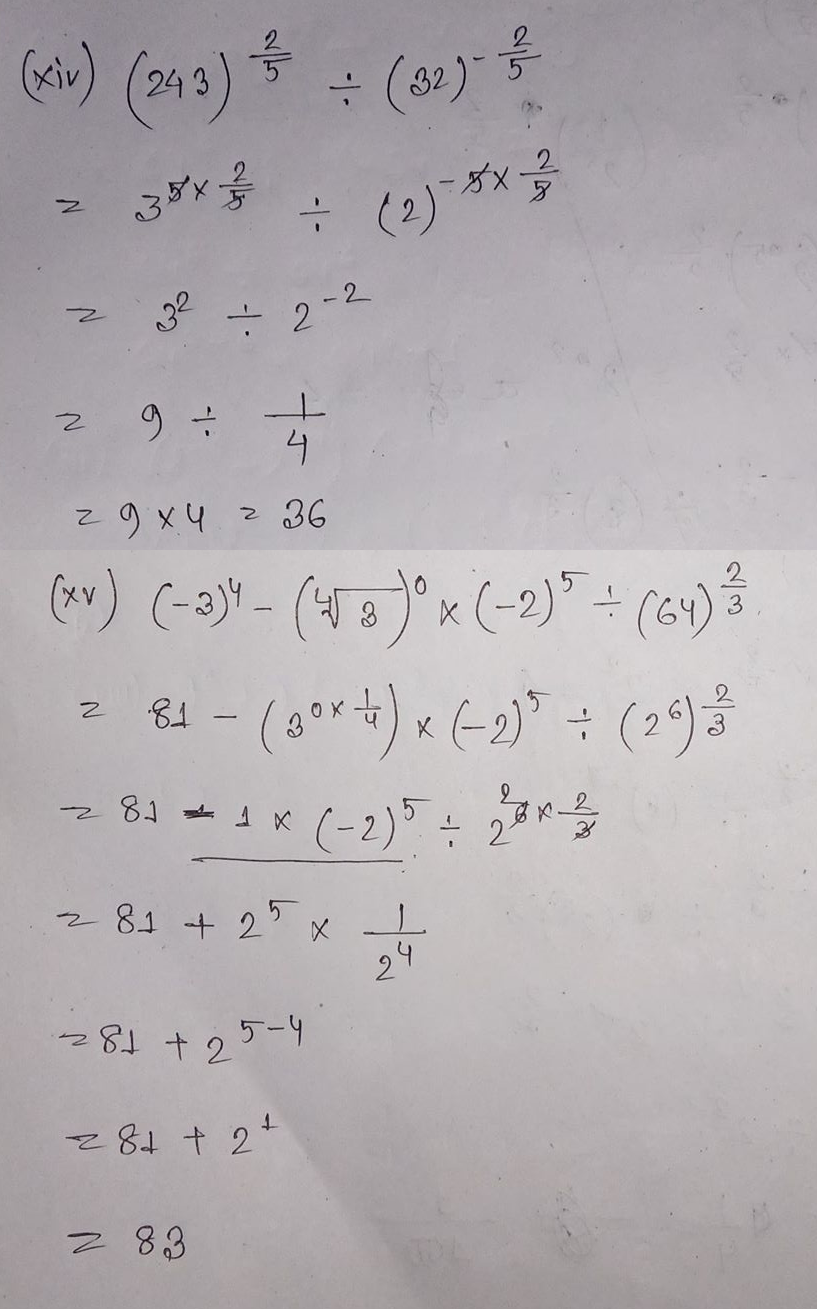 (xiv) (243)^{2/5} ÷ (32)^{-2/5}
= 3^{5×2/5} ÷ (2)^{-5×2/5}
= 3^2 ÷ 2^{-2}
= 9 ÷ 1/4
= 9 × 4 = 36
(xv) (-3)^4 - (∜3)^0 × (-2)^5 ÷ (64)^{2/3}
= 81 - (3^{0×1/4}) × (-2)^5 ÷ (2^6)^{2/3}
= 81 - 1 × (-2)^5 ÷ 2^{6×2/3} 2
= 81 + 2^5 × 1/2^4
= 81 + 2^{5-4}
= 81 + 2^1
= 83